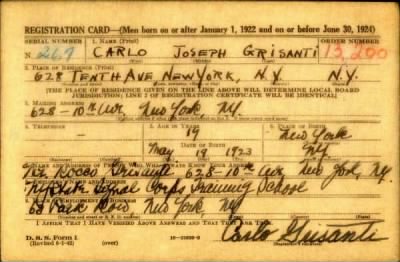 REGISTRATION CARD—(Men born on or after January 1, 1922 and on or before June 30, 1924)
SERIAL NUMBER 1. NAME (Print) ORDER NUMBER
N 269 CARLO JOSEPH GRISANTI 13,200
(First) (Middle) (Last)
2. PLACE OF RESIDENCE (Print)
628 TENTH AVE NEW YORK, N.Y. N.Y.
[THE PLACE OF RESIDENCE GIVEN ON THE LINE ABOVE WILL DETERMINE LOCAL BOARD
JURISDICTION; LINE 2 OF REGISTRATION CERTIFICATE WILL BE IDENTICAL]
3. MAILING ADDRESS
628-10th Ave New York NY.
4. TELEPHONE 5. AGE IN YEARS 6. PLACE OF BIRTH
— 19 New York
DATE OF BIRTH
May 19 1923 NY.
7. NAME AND ADDRESS OF PERSON WHO WILL ALWAYS KNOW YOUR ADDRESS
Rocco Grisanti 628-10th Ave, New York, NY.
Signal Corps Training School
68 Park Row New York NY
I AFFIRM THAT I HAVE VERIFIED ABOVE ANSWERS AND THAT THEY ARE TRUE.
D. S. S. Form 1
(Revised 6-1-42) (over)
Carlo Grisanti